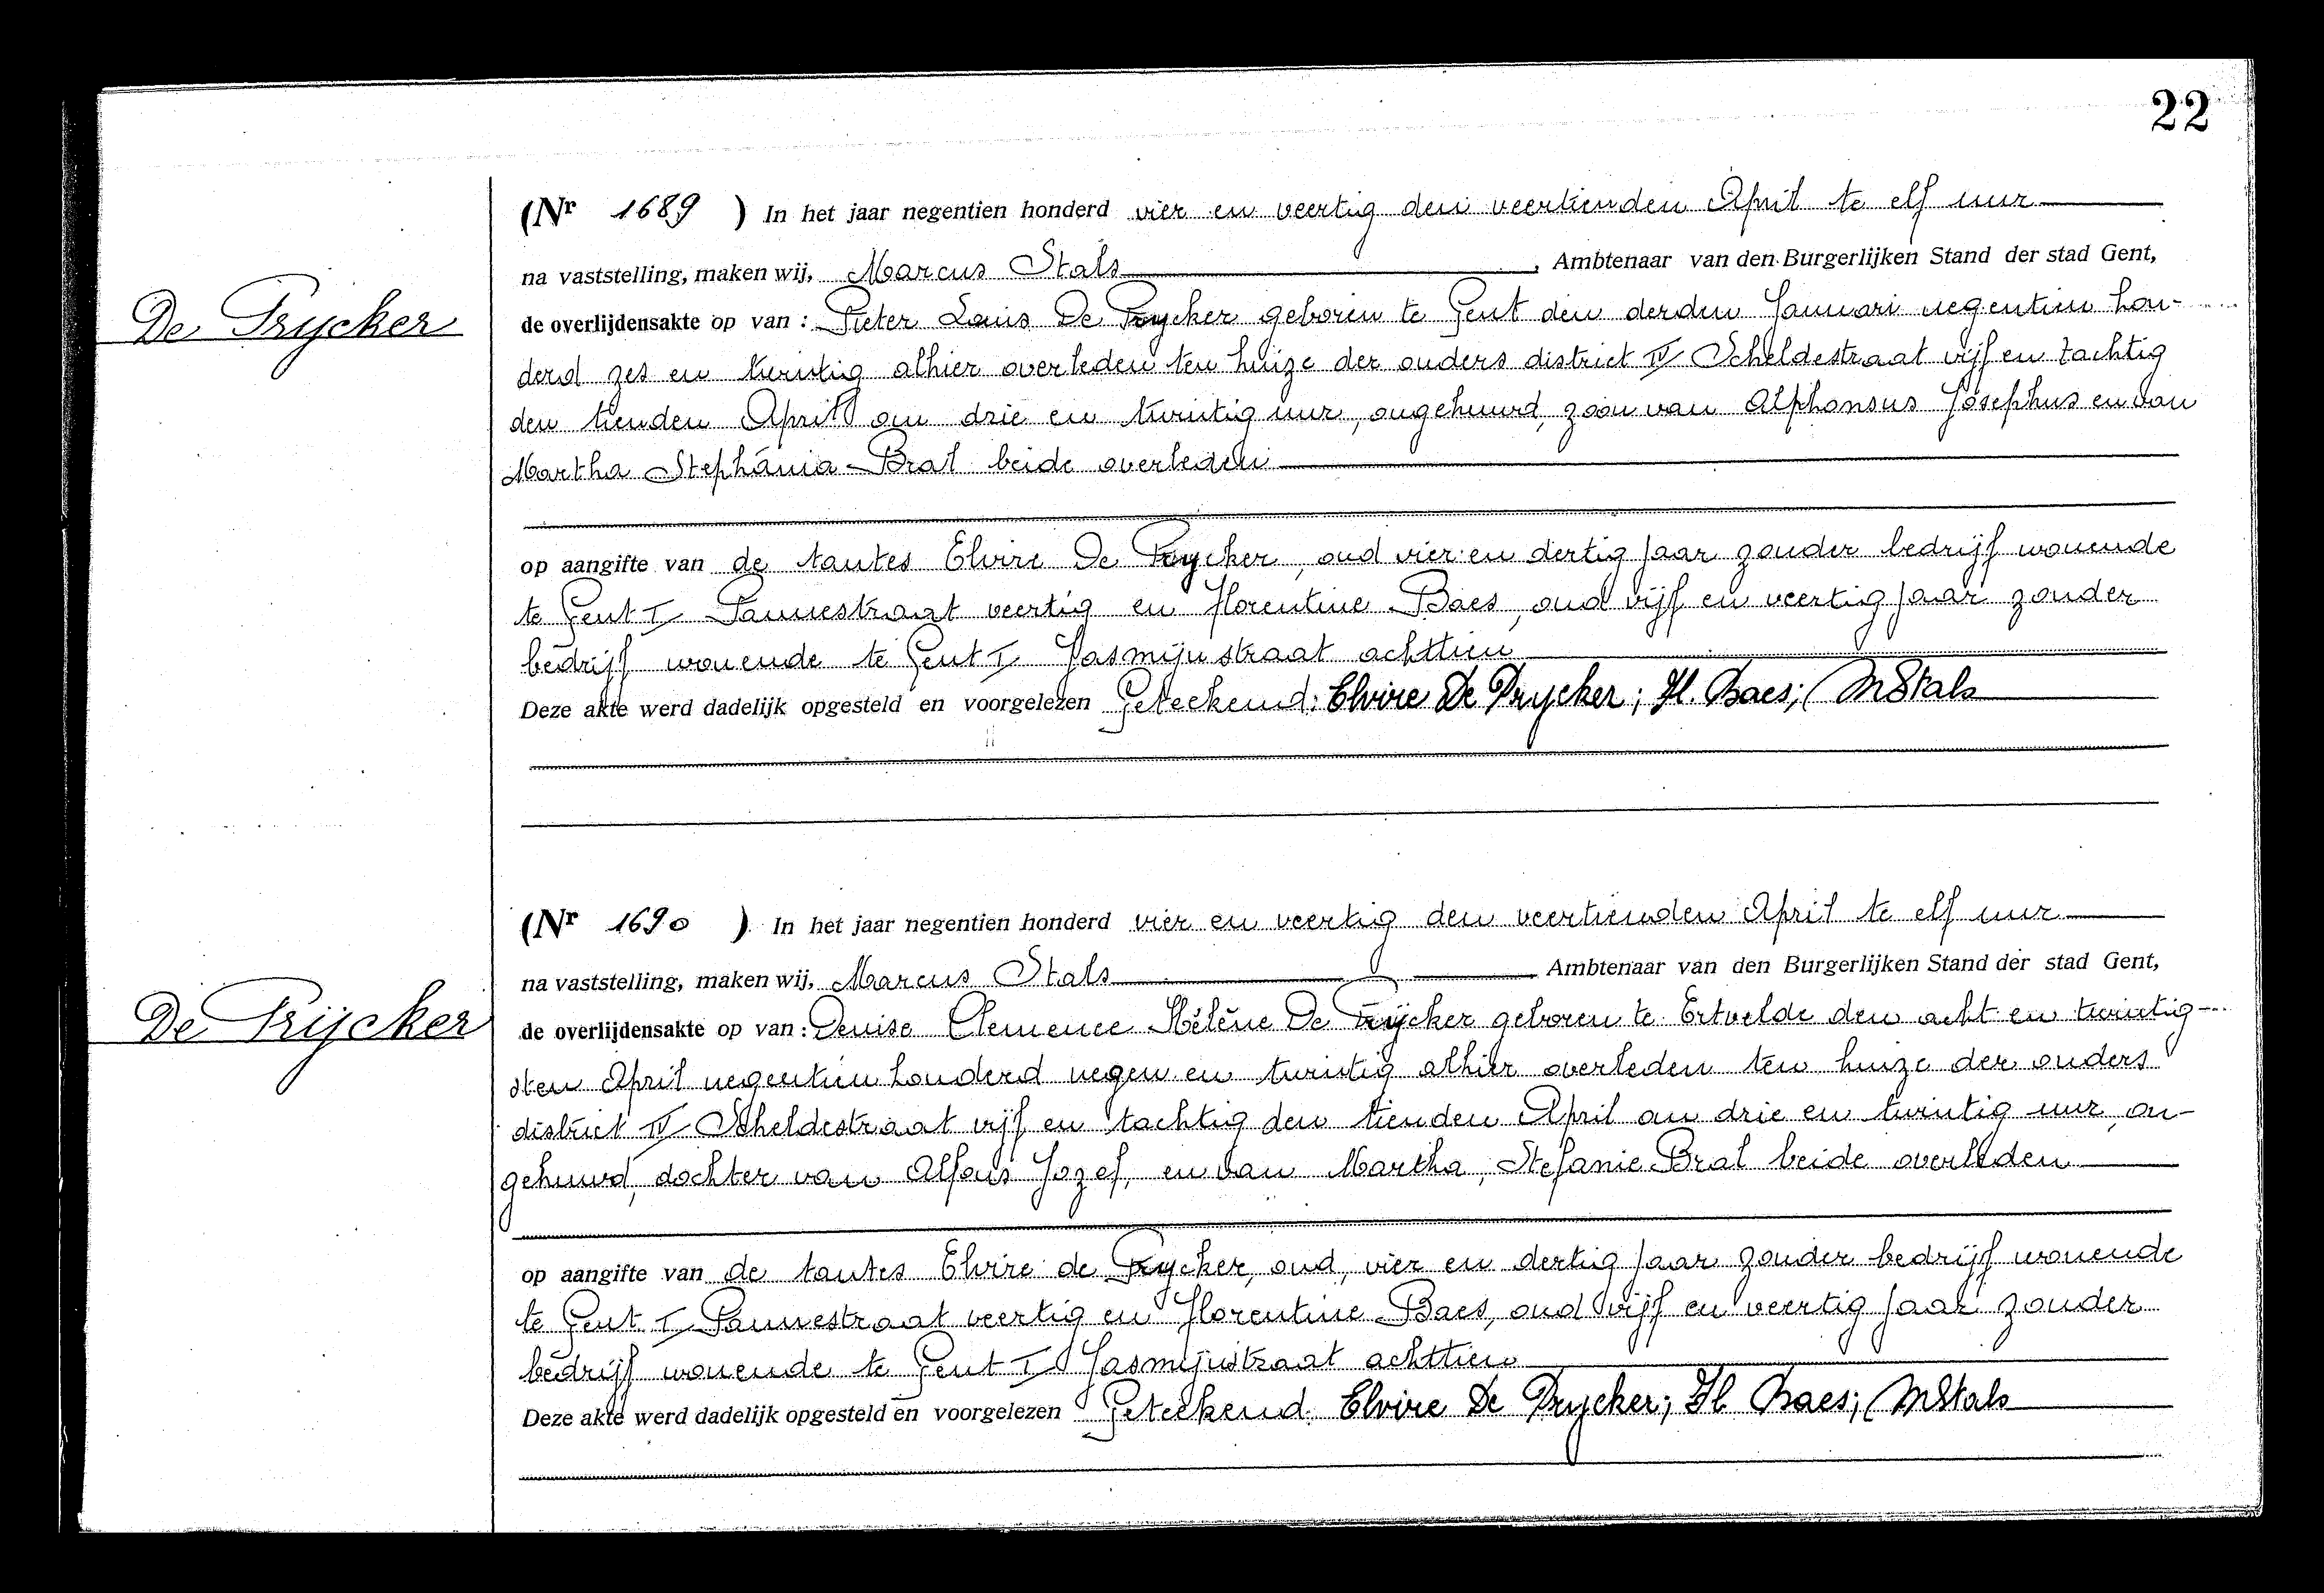 22
(Nr 1689 ) In het jaar negentien honderd vier en veertig den veertienden April te elf uur
na vaststelling, maken wij, Marcus Stals, Ambtenaar van den Burgerlijken Stand der stad Gent,
De Prycker
de overlijdensakte op van : Pieter Louis De Prycker geboren te Gent den derden Januari negentien hon-
derd zes en twintig alhier overleden ten huize der ouders district IV Scheldestraat vijf en tachtig
den tienden April om drie en twintig uur, ongehuwd, zoon van Alphonsus Josephus en van
Martha Stephánia Bral beide overleden
op aangifte van de tantes Elvire De Prycker, oud vier en dertig jaar zonder bedrijf wonende
te Gent I Pannestraat veertig en Florentine Baes, oud vijf en veertig jaar zonder
bedrijf wonende te Gent I Jasmijnstraat achttien
Deze akte werd dadelijk opgesteld en voorgelezen Geteekend: Elvire De Prycker; Fl. Baes; MStals
(Nr 1690 ) In het jaar negentien honderd vier en veertig den veertienden April te elf uur
na vaststelling, maken wij, Marcus Stals Ambtenaar van den Burgerlijken Stand der stad Gent,
De Prijcker
de overlijdensakte op van : Denise Clemence Hélène De Prijcker geboren te Ertvelde den acht en twintig-
sten April negentien honderd negen en twintig alhier overleden ten huize der ouders
district IV Scheldestraat vijf en tachtig den tienden April om drie en twintig uur, on-
gehuwd, dochter van Alfons Jozef, en van Martha, Stefanie Bral beide overleden
op aangifte van de tantes Elvire de Prycker, oud, vier en dertig jaar zonder bedrijf wonende
te Gent I Pannestraat veertig en Florentine Baes, oud vijf en veertig jaar zonder
bedrijf wonende te Gent I Jasmijnstraat achttien
Deze akte werd dadelijk opgesteld en voorgelezen Geteekend: Elvire De Prycker; Fl Baes; MStals